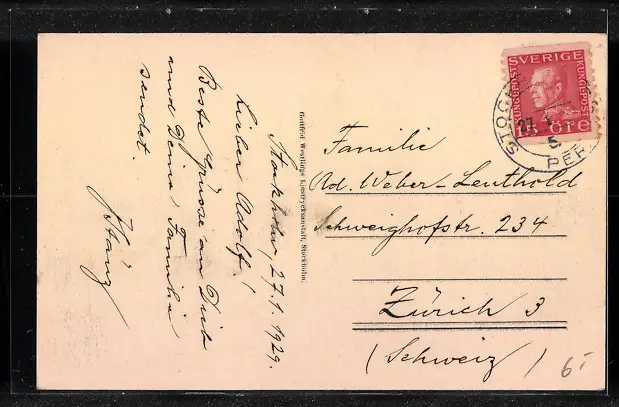 Stockholm, 27.1.1929.
Lieber Adolf!
Beste Grüsse an Dich
und Deine Familie
sendet.
Gottfrid Westlings Ljustrycksanstalt, Stockholm.
SVERIGE
KUNGSPOST
KUNGSPOST
15 öre
STOCK
27.1
PER
Familie
Ad. Weber-Leuthold
Schweighofstr. 234
Zürich 3
(Schweiz)
6.-